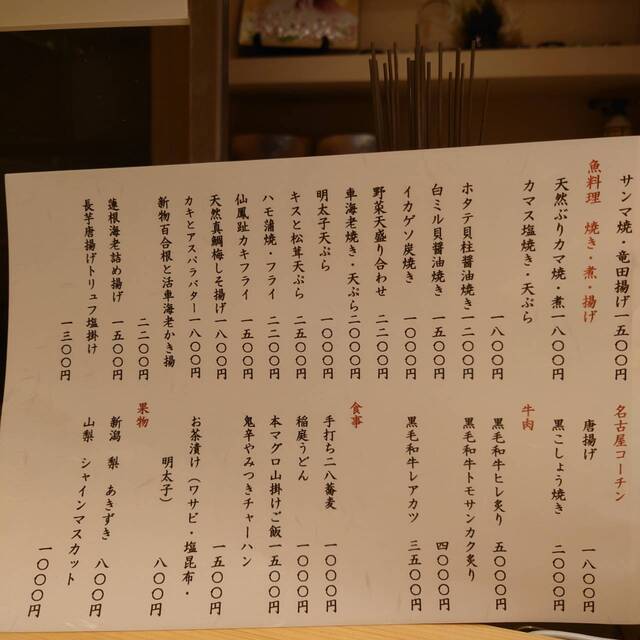 サンマ焼・竜田揚げ一五〇〇円
魚料理 焼き・煮・揚げ
天然ぶりカマ焼・煮一八〇〇円
カマス塩焼き・天ぷら
一八〇〇円
ホタテ貝柱醤油焼き一二〇〇円
白ミル貝醤油焼き 一五〇〇円
イカゲソ炭焼き 一〇〇〇円
野菜天盛り合わせ 二二〇〇円
車海老焼き・天ぷら二〇〇〇円
明太子天ぷら 一〇〇〇円
キスと松茸天ぷら 二五〇〇円
ハモ蒲焼・フライ 二二〇〇円
仙鳳趾カキフライ 一五〇〇円
天然真鯛梅しそ揚げ一八〇〇円
カキとアスパラバター一八〇〇円
新物百合根と活車海老かき揚
二二〇〇円
蓮根海老詰め揚げ 一五〇〇円
長芋唐揚げトリュフ塩掛け
一三〇〇円
名古屋コーチン
唐揚げ 一八〇〇円
黒こしょう焼き 二〇〇〇円
牛肉
黒毛和牛ヒレ炙り 五〇〇〇円
黒毛和牛トモサンカク炙り
四〇〇〇円
黒毛和牛レアカツ 三五〇〇円
食事
手打ち二八蕎麦 一〇〇〇円
稲庭うどん 一〇〇〇円
本マグロ山掛けご飯一五〇〇円
鬼辛やみつきチャーハン
一五〇〇円
お茶漬け（ワサビ・塩昆布・
明太子） 八〇〇円
果物
新潟 梨 あきずき 八〇〇円
山梨 シャインマスカット
一〇〇〇円